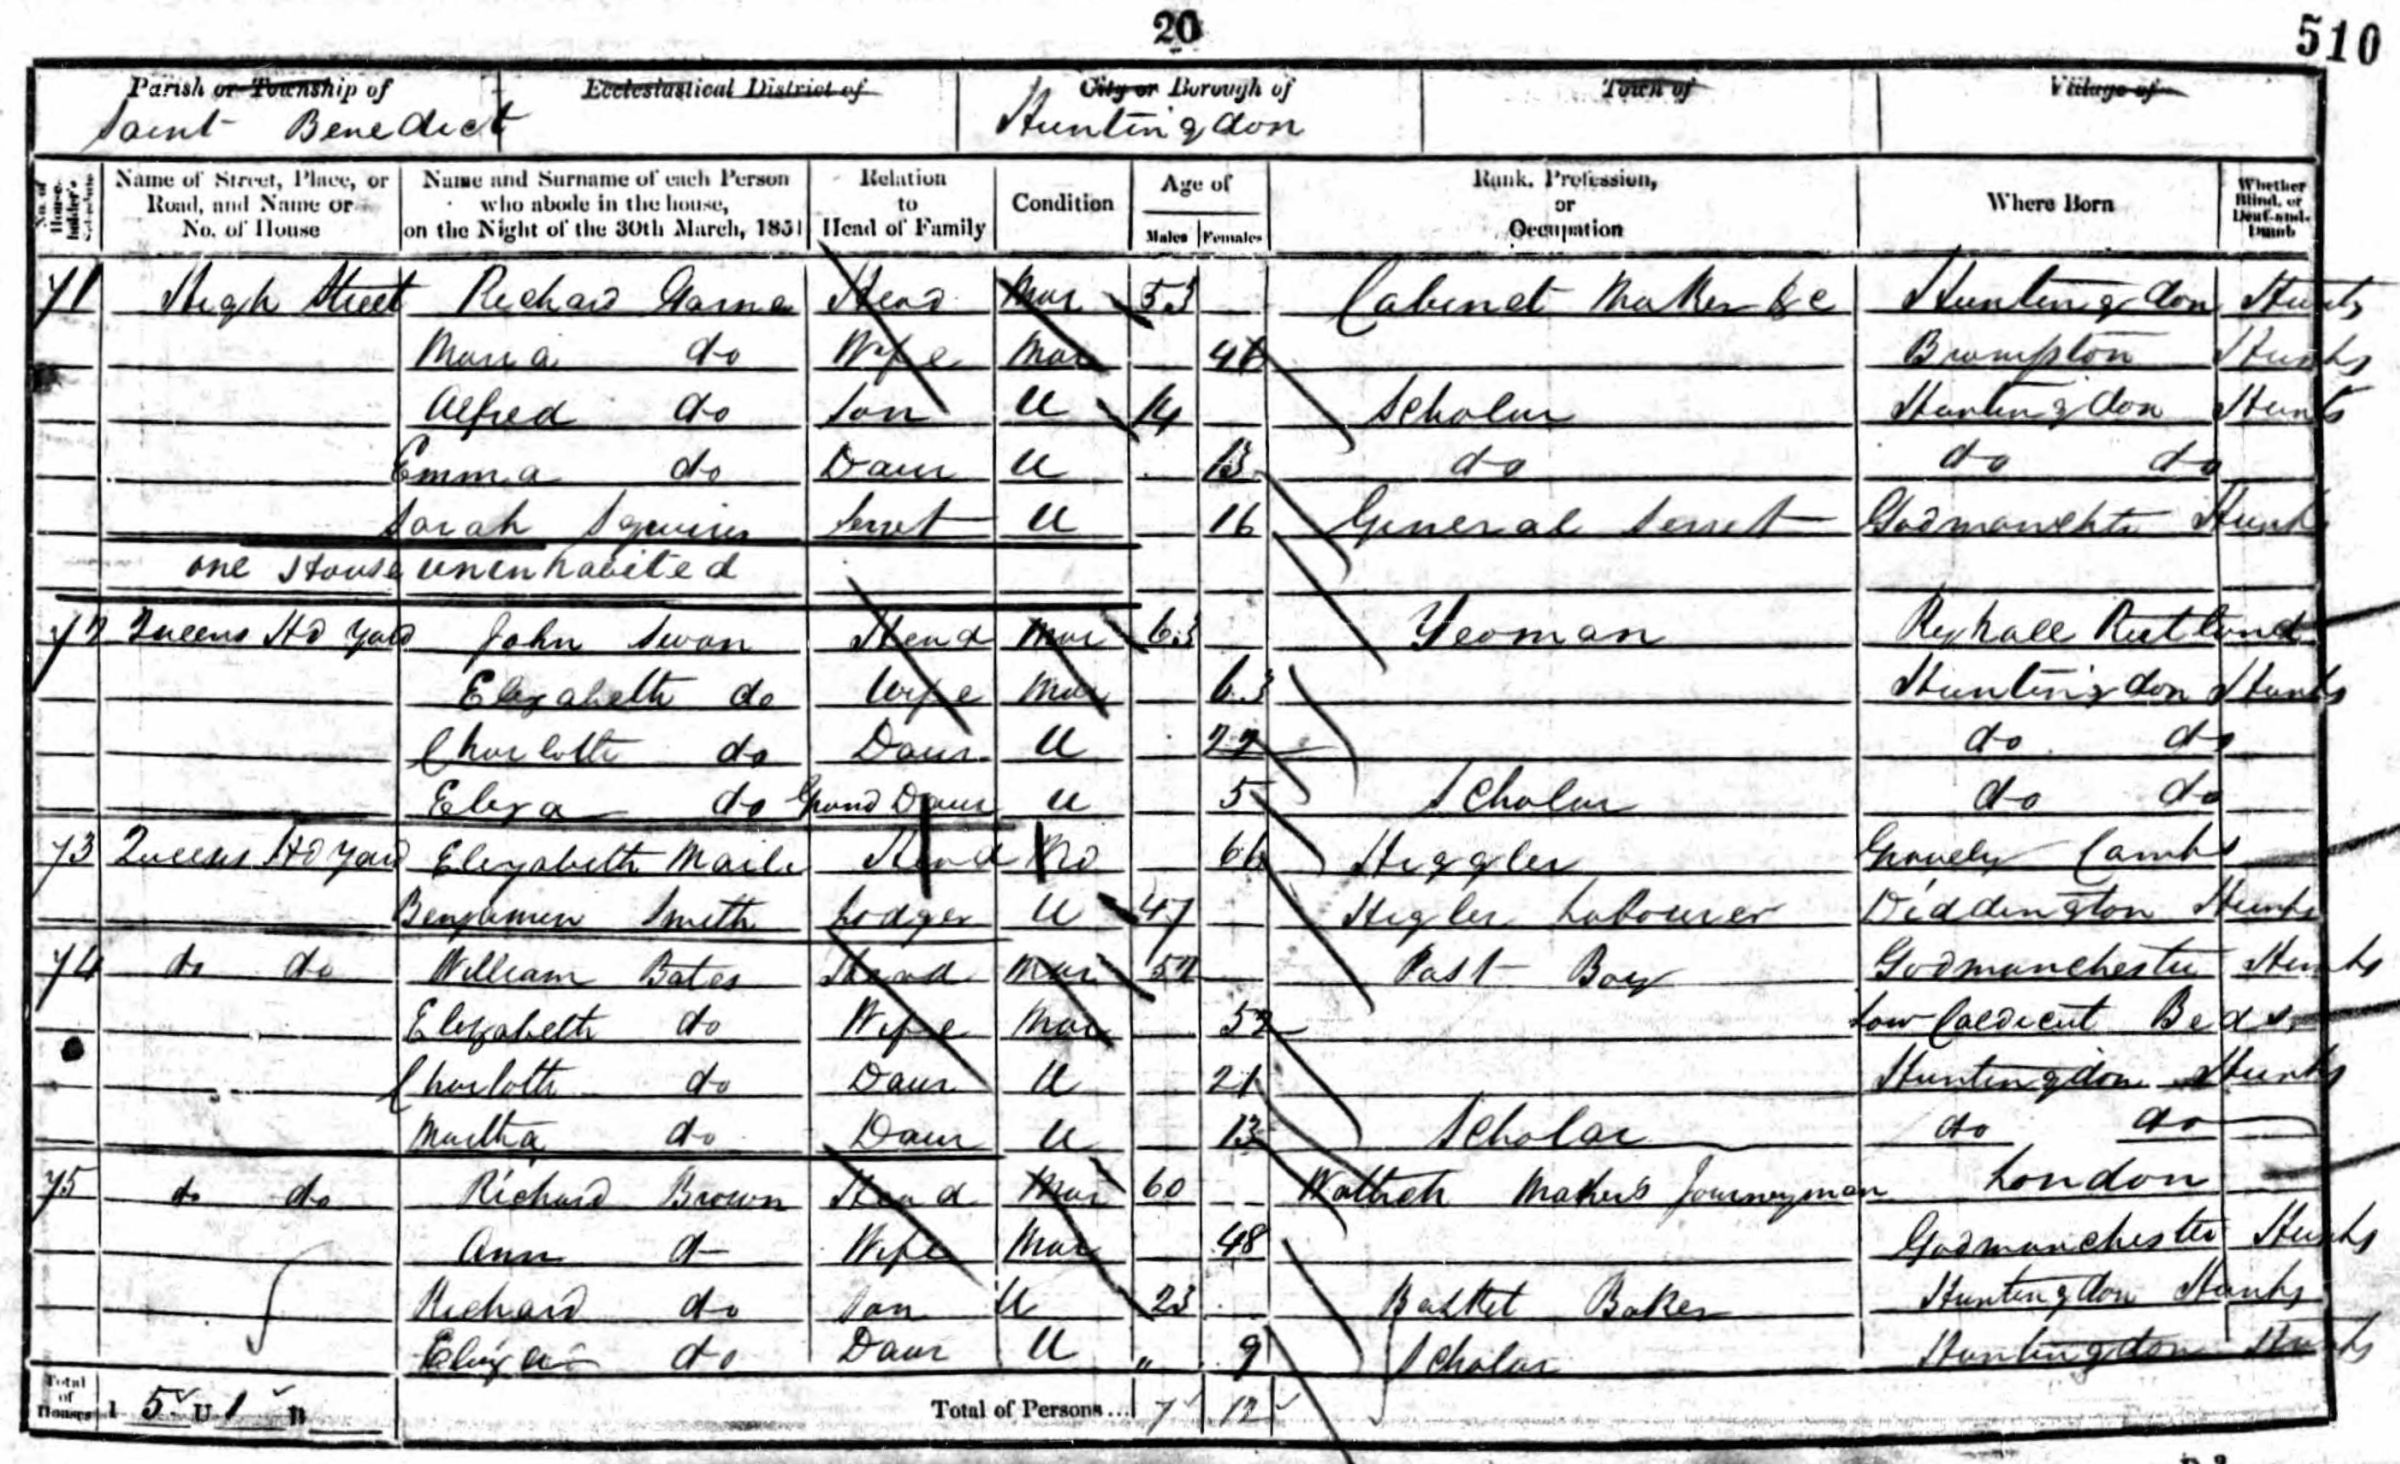 20
510
Parish or Township of Ecclesiastical District of City or Borough of Town of Village of
Saint Benedict Huntingdon
No. of House-holder's Schedule Name of Street, Place, or Road, and Name or No. of House Name and Surname of each Person who abode in the house, on the Night of the 30th March, 1851 Relation to Head of Family Condition Age of Males Females Rank, Profession, or Occupation Where Born Whether Blind, or Deaf-and-Dumb
71 High Street Richard Head Mar 53 Cabinet Maker &c Huntingdon Hunts
Maria do Wife Mar 46 Brampton Hunts
Alfred do Son U 14 Scholar Huntingdon Hunts
Emma do Daur U 13 do do do
Sarah Squires Servt U 16 General Servt Godmanchtr Hunts
one House uneinhabited
72 Queens Hd Yard John Swan Head Mar 63 Yeoman Ryhall Rutland
Elizabeth do Wife Mar 63 Huntingdon Hunts
Charlotte do Daur U 22 do do
Eliza do Grand Daur U 5 Scholar do do
73 Queens Hd Yard Elizabeth Maile Head Wd 66 Higgler Graveley Cambs
Benjamin Smith Lodger U 47 Higler Labourer Diddington Hunts
74 do do William Bates Head Mar 52 Post Boy Godmanchester Hunts
Elizabeth do Wife Mar 52 Low Caldicut Beds
Charlotte do Daur U 21 Huntingdon Hunts
Martha do Daur U 13 Scholar do do
75 do do Richard Brown Head Mar 60 Maker's Journeyman London
Ann d- Wife Mar 48 Godmanchester Hunts
Richard do Son U 23 Basket Baker Huntingdon Hunts
Eliza do Daur U " 9 Scholar Huntingdon Hunts
Total of Houses I 5 U 1 B Total of Persons... 7 12